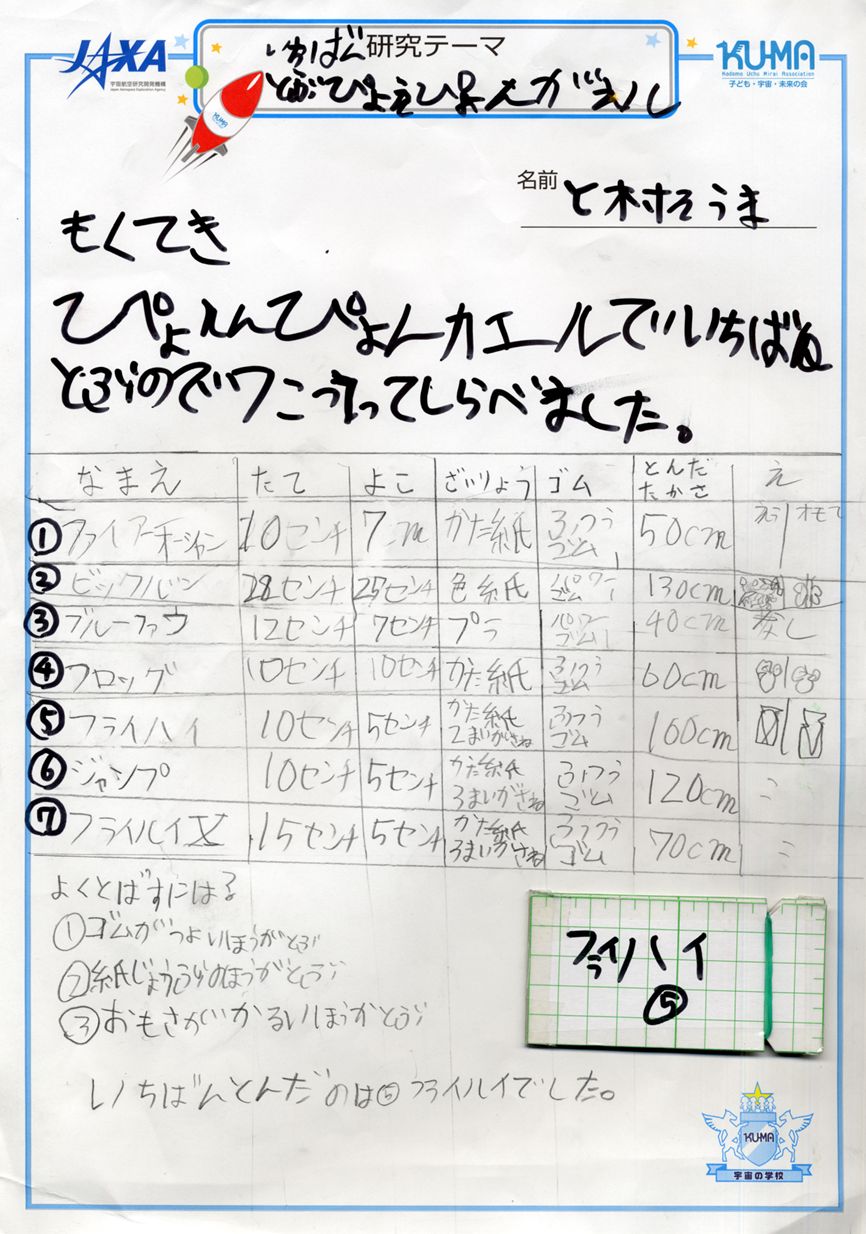 JAXA
宇宙航空研究開発機構
Japan Aerospace Exploration Agency
いちばん研究テーマ
とぶぴょんぴょんがえル
KUMA
Kodomo Uchu Mirai Association
子ども・宇宙・未来の会
KU-MA
名前 と村そうま
もくてき
てぴょんんぴょんカエールでいちばん
とぶので7こつくってしらべました。
なまえ たて よこ ざいりょう ゴム とんだたかさ え
①ファイアーオーシャン 10センチ 7cm かた紙 ふつうゴム 50cm うら オモて
②ビックルン 28センチ 25センチ 色紙 パワーゴム 130cm
③ブルーファウ 12センチ 7センチ プラ パワーゴム 40cm なし
④フロッグ 10センチ 10センチ かた紙 ふつうゴム 60cm
⑤フライハイ 10センチ 5センチ かた紙2まいがさね ふつうゴム 160cm
⑥ジャンプ 10センチ 5センチ かた紙3まいがさね ふつうゴム 120cm 〃
⑦フライハイX 15センチ 5センチ かた紙3まいかさね ふつうゴム 70cm 〃
よくとばすには?
①ゴムがつよいほうがとぶ
②紙じょうぶのほうがとぶ
③おもさがかるいほうがとぶ
フライハイ
⑤
いちばんとんだのは⑤フライハイでした。
KU-MA
宇宙の学校